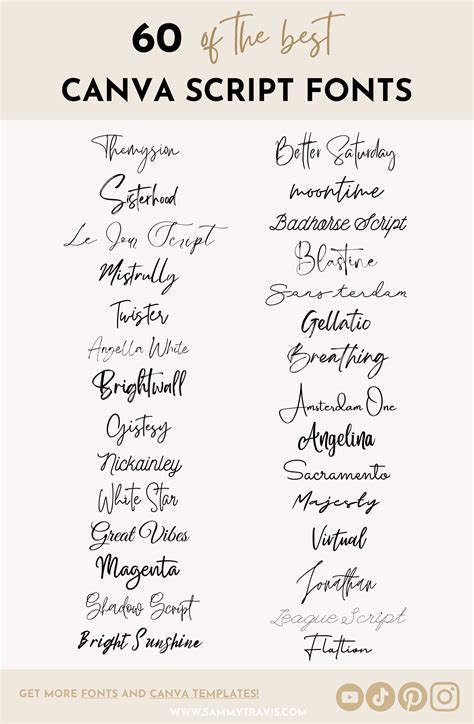 60 of the best
CANVA SCRIPT FONTS
Themysion
Sisterhood
Le Jour Script
Mistrully
Twister
Angella White
Brightwall
Gistesy
Nickainley
White Star
Great Vibes
Magenta
Shadow Script
Bright Sunshine
Better Saturday
moontime
Badhorse Script
Blastine
Sansterdam
Gellatio
Breathing
Amsterdam One
Angelina
Sacramento
Majesty
Virtual
Jonathan
League Script
Flatlion
GET MORE FONTS AND CANVA TEMPLATES!
WWW.SAMMYTRAVIS.COM